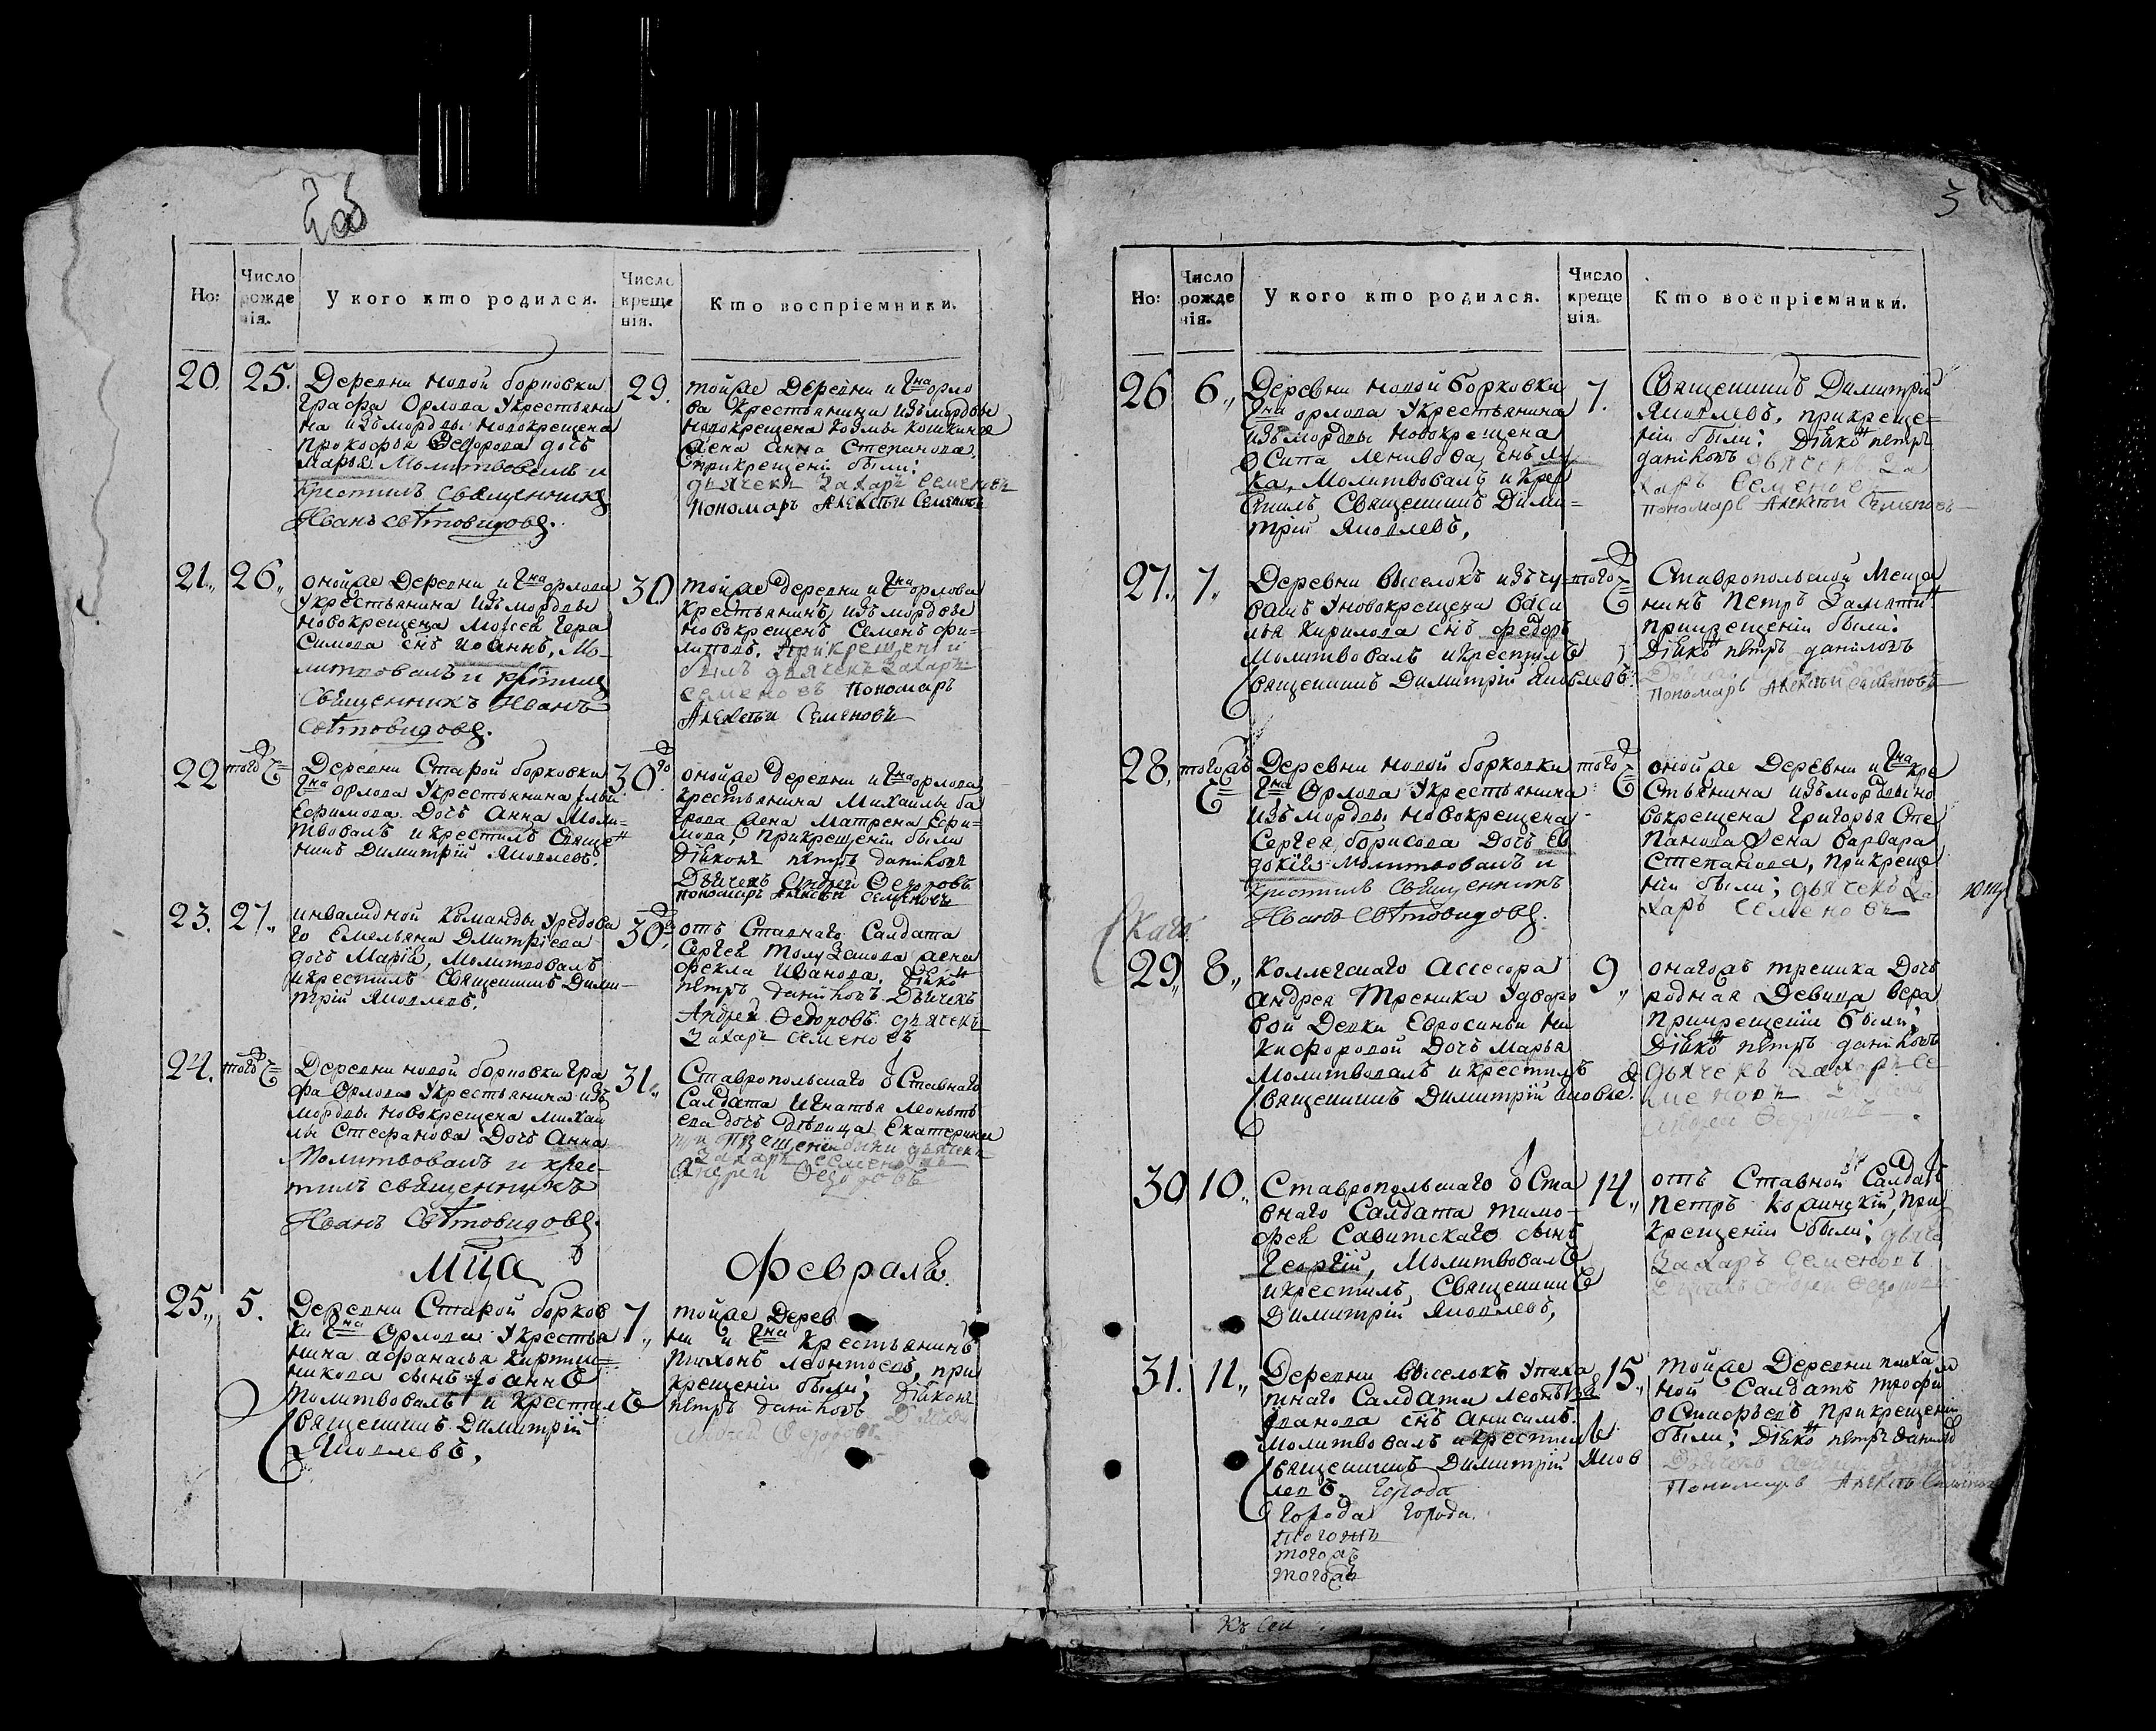 Но:
Число рожденія.
У кого кто родился.
Число крещенія.
Кто воспріемники.
20. 25.
Деревни новой борковки
графа Орлова Укрестьяни
на изъ мордвы новокрещена
Прокофья Федорова дочь
марья. Молитвовалъ и
крестилъ священникъ
Иванъ Световидовъ.
29.
тойже Деревни и гна орло
ва крестьянина изъ мордвы
новокрещена козмы
жена анна Степанова
прикрещеніи были:
дьячекъ Захаръ Семеновъ
Пономарь Алексѣй Семеновъ
21. 26.
онойже Деревни и гна орлова
Укрестьянина изъ мордвы
новокрещена Моисея Гера
симова снъ иоаннъ, Мо-
литвовалъ и
Священникъ Иванъ
Световидовъ.
30
тойже деревни и гна орлова
крестьянинъ изъ мордвы
новокрещенъ Семенъ фи-
липовъ. прикрещеніи
былъ дьячекъ Захаръ
Семеновъ Пономарь
Алексѣй Семеновъ
22 тогоже
Деревни Старой борковки
гна орлова Укрестьянина
Ефимова Дочь Анна Моли-
твовалъ и крестилъ Свяще
нникъ Димитрій Яковлевъ.
30го
онойже деревни и гна орлова
крестьянина Михаилы
жена Матрена Ефи-
мова, прикрещеніи были
Діяконъ петръ даниловъ
Дьячекъ Андрей Федоровъ
пономарь Алексѣй Семеновъ
23. 27.
инвалидной Команды Урядова
го Емельяна Дмитріева
дочь Марія, Молитвовалъ
и крестилъ Священникъ Дими-
трій Яковлевъ.
30.
отъ Ставнаго Салдата
Сергея жена
фекла Иванова.
петръ даниловъ. Дьячекъ
Андрей Федоровъ дьячекъ
Захаръ Семеновъ
24. тогоже
Деревни новой борковки гра
фа Орлова Укрестьянина изъ
мордвы новокрещена михаи
лы Стефанова Дочь Анна
Молитвовалъ и крес-
тилъ священникъ
Иванъ Световидовъ.
31.
Ставропольскаго оТставнаго
Салдата Игнатья леонть
ева дочь девица Екатерина
были дьячекъ
Захаръ Семеновъ
Андрей Федоровъ
Мца Февраля.
25. 5.
Деревни Старой борков
ки гна Орлова Укрестья
нина афанасья
сынъ Иоаннъ
Молитвовалъ и крестилъ
Священникъ Димитрій
Яковлевъ.
7.
тойже Дерев
ни и гна крестьянинъ
Тихонъ леонтьевъ, при
крещеніи были; Діяконъ
петръ даниловъ Дьячекъ
Андрей Федоровъ
3
Но:
Число рожденія.
У кого кто родился.
Число крещенія.
Кто воспріемники.
26 6.
Деревни новой борковки
гна орлова Укрестьянина
изъ мордвы новокрещена
Осипа снъ лу
ка, Молитвовалъ и кре
стилъ, Священникъ Дими-
трій Яковлевъ,
7.
Священникъ Димитрій
Яковлевъ. прикреще-
ніи были: Діяконъ петръ
даниловъ дьячекъ За
харъ Семеновъ
пономарь Алексѣй Семеновъ
27. 7.
Деревни выселокъ изъ чу
вашъ Уновокрещена Васи
лья Кирилова снъ федоръ
Молитвовалъ и крестилъ
Священникъ Димитрій Яковлевъ.
тогоже
Ставропольской Меща
нинъ Петръ
прикрещеніи были:
Діяконъ петръ даниловъ
Пономарь Алексѣй Семеновъ
28, тогожъ
Деревни новой борковки
гна Орлова Укрестьянина
изъ мордвы новокрещена
Сергея борисова Дочь ев
докія молитвовалъ и
крестилъ Священникъ
Иванъ Световидовъ.
тогоже
онойже Деревни и гна кре
стьянина изъ мордвы но
вокрещена Григорья Сте
панова жена Варвара
Степанова, прикреще
ніи были; дьячекъ За
харъ Семеновъ
29, 8.
Коллегскаго Ассесора
андрея Треника Удворо
вой Девки Евросиньи Ни
кифоровой Дочь Марья
Молитвовалъ и крестилъ
Священникъ Димитрій Яковле.
9.
онагожъ треника Доч
родная Девица вера
Прикрещеніи были;
Діяконъ петръ даниловъ
дьячекъ Захаръ Се
меновъ
Андрей Федоровъ
30 10.
Ставропольскаго оТста
внаго Салдата Тимо-
фея Савитскаго сынъ
Георгій, Молитвовалъ
и крестилъ, Священникъ
Димитрій Яковлевъ,
14.
отъ Ставной Салдатъ
петръ при
крещеніи были; дьяче
Захаръ Семеновъ
31. 11.
Деревни выселокъ Упаха
тнаго Салдата леонтья
Иванова снъ Анисимъ.
молитвовалъ и крестилъ
Священникъ Димитрій Яков
левъ. города
города города.
тогожъ
тогожъ
тогожъ
15.
тойже Деревни пахат
ной Салдатъ трофи
прикрещеніи
были; Діяконъ петръ данило
Пономарь Алексѣй Семенов